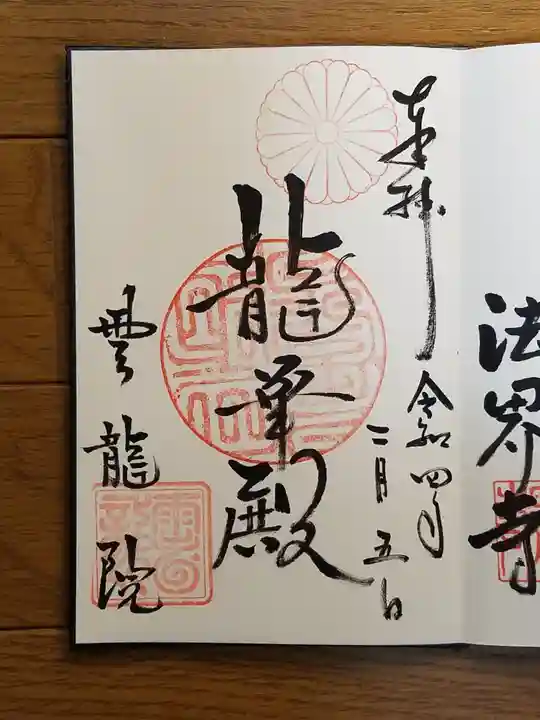 法界寺
奉拝
令和四年
二月五日
龍華殿
雲龍院